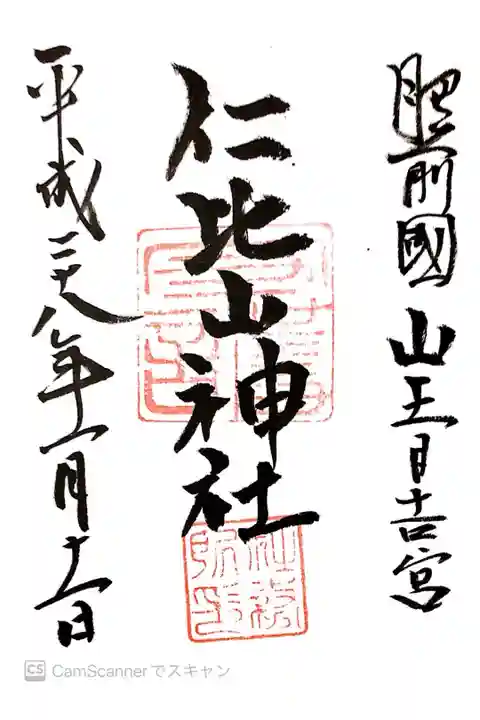 肥前國 山王日吉宮
仁比山神社
平成二十八年一月十一日
CS CamScannerでスキャン